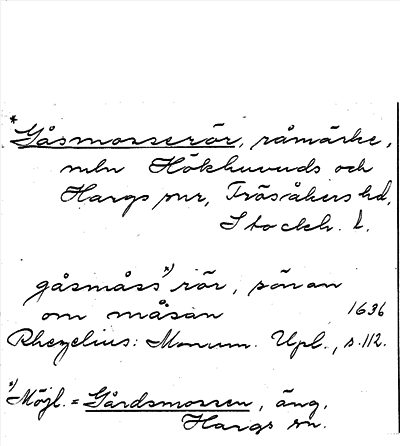 * Gåsmosserör, råmärke,
mln Hökhuvuds och
Hargs snr, Frösåkers hd,
Stockh. l.
gåsmåss¹⁾ rör, sönan
om måsan 1636
Rhezelius: Monum. Upl., s. 112.
¹⁾ Möjl. = Gårdsmossen, äng,
Hargs sn.